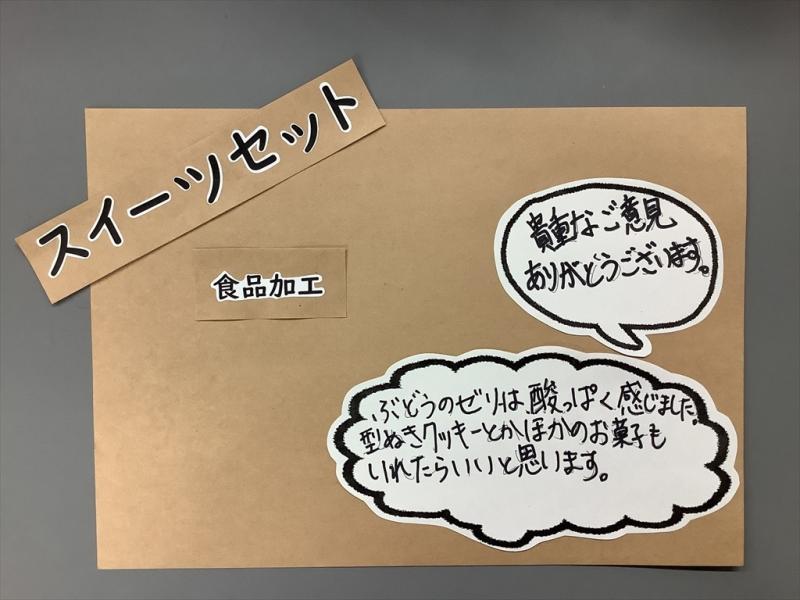 スイーツセット
食品加工
貴重なご意見
ありがとうございます。
ぶどうのゼリは酸っぱく感じました。
型ぬきクッキーとかほかのお菓子も
いれたらいいと思います。